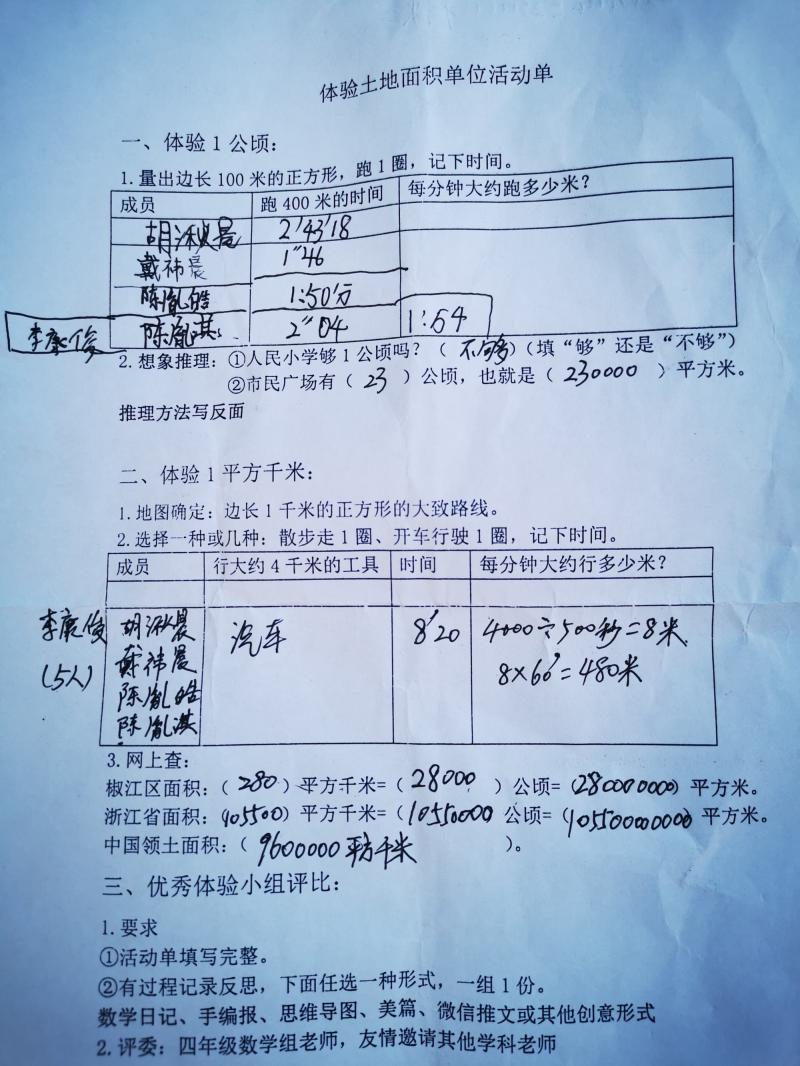 体验土地面积单位活动单
一、体验1公顷：
1.量出边长100米的正方形，跑1圈，记下时间。
成员 跑400米的时间 每分钟大约跑多少米？
胡泳晨 2'43'18
戴祎晨 1"46
陈胤皓 1:50分
李康俊 陈胤淇 2"04 1:54
2.想象推理：①人民小学够1公顷吗？（不够）（填“够”还是“不够”）
②市民广场有（23）公顷，也就是（230000）平方米。
推理方法写反面
二、体验1平方千米：
1.地图确定：边长1千米的正方形的大致路线。
2.选择一种或几种：散步走1圈、开车行驶1圈，记下时间。
成员 行大约4千米的工具 时间 每分钟大约行多少米？
李康俊 胡泳晨 汽车 8'20 4000÷500秒=8米
（5人） 戴祎晨 8×60=480米
陈胤皓
陈胤淇
3.网上查：
椒江区面积：（280）平方千米=（28000）公顷=（280000000）平方米。
浙江省面积：（105500）平方千米=（10550000公顷=（105500000000平方米。
中国领土面积：（9600000平方千米）。
三、优秀体验小组评比：
1.要求
①活动单填写完整。
②有过程记录反思，下面任选一种形式，一组1份。
数学日记、手编报、思维导图、美篇、微信推文或其他创意形式
2.评委：四年级数学组老师，友情邀请其他学科老师